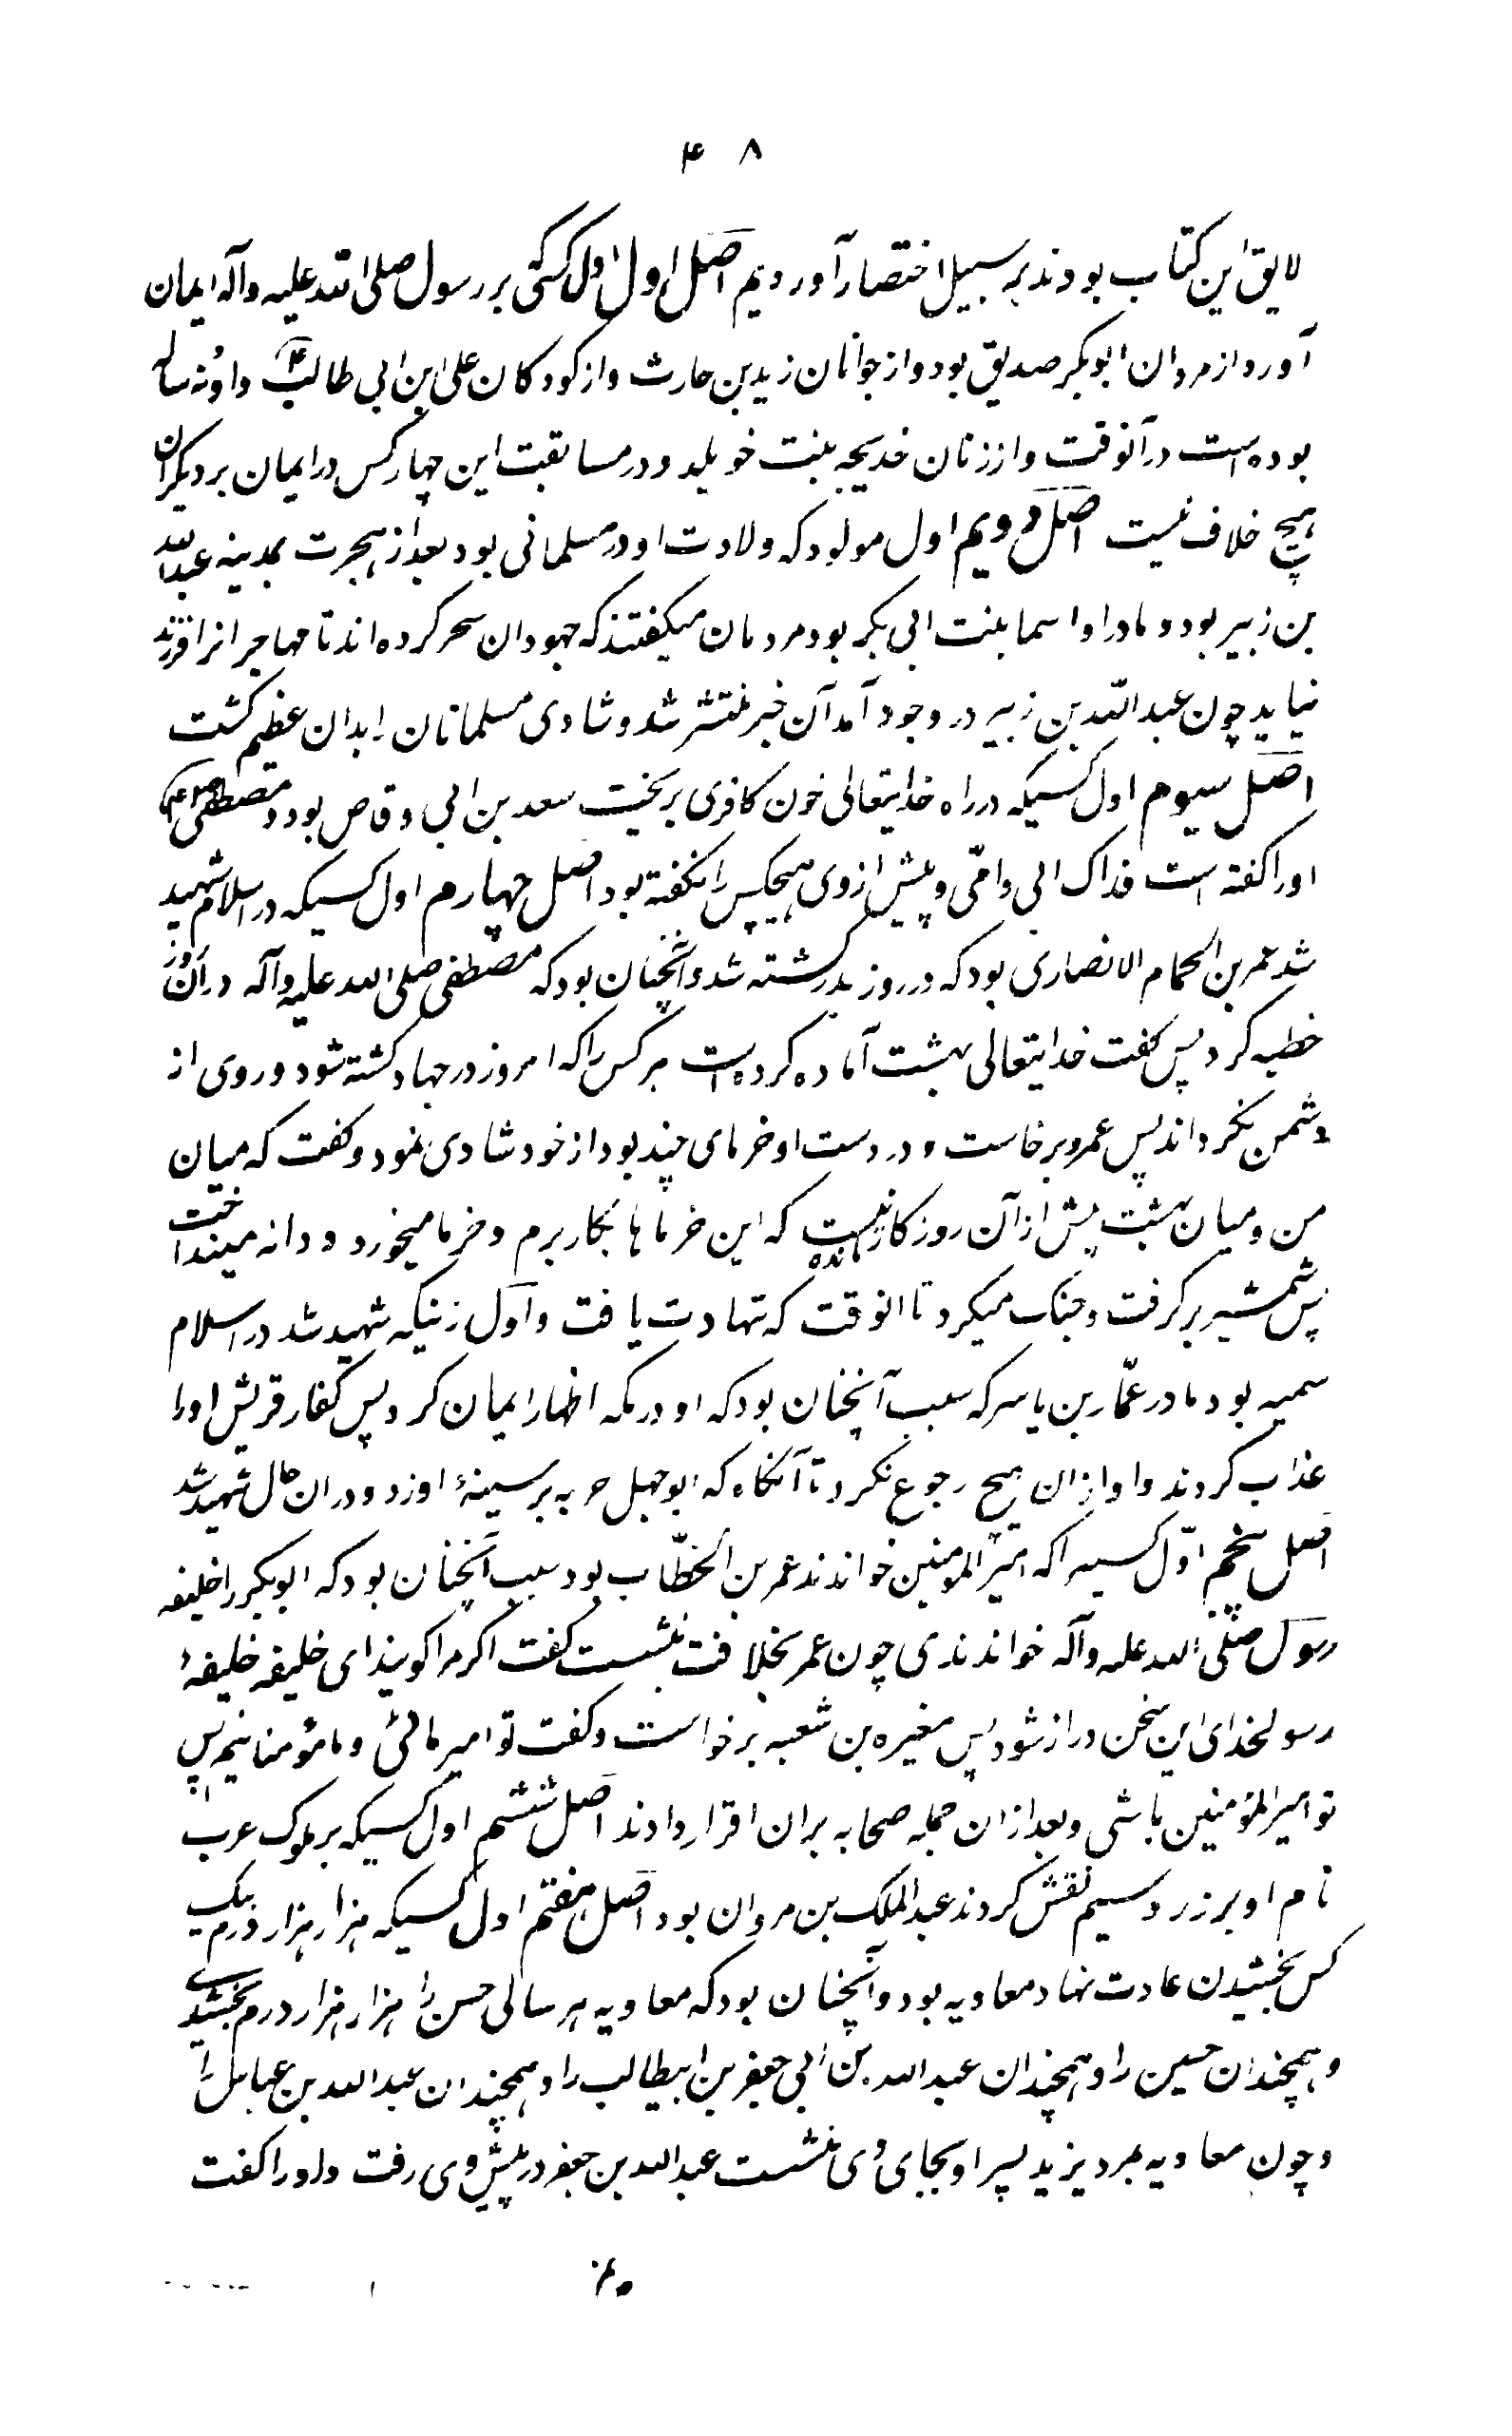 ۴۸
لایق این کتاب بودند بر سبیل اختصار آوردیم اصل اول اول کسی که بر رسول صلی الله علیه وآله ایمان
آورد از مردان ابوبکر صدیق بود و از جوانان زید بن حارث و از کودکان علی ابن ابی طالبؑ و او نه ساله
بوده است در آنوقت و از زنان خدیجه بنت خویلد و در مسابقت این چهار کس در ایمان بر دیگران
هیچ خلاف نیست اصل دویم اول مولود که ولادت او در مسلمانی بود بعد از هجرت بمدینه عبدالله
بن زبیر بود و مادر او اسما بنت ابی بکر بود مردمان میگفتند که جهودان سحر کرده اند تا مهاجرانرا فرزند
نیاید چون عبدالله بن زبیر در وجود آمد آن خبر منتشر شد و شادی مسلمانان بدان عظیم گشت
اصل سیوم اول کسیکه در راه خدایتعالی خون کافری بریخت سعد بن ابی وقاص بود و مصطفی صلعم
اورا گفته است فداک ابی وامّی و پیش از وی هیچکس را نگفته بود اصل چهارم اول کسیکه در اسلام شهید
شد عمر بن الحمام الانصاری بود که در روز بدر کشته شد و آنچنان بود که مصطفی صلی الله علیه وآله در آن روز
خطبه کرد پس گفت خدایتعالی بهشت آماده کرده است هر کس را که امروز در جهاد کشته شود و روی از
دشمن نگرداند پس عمرو برخاست و در دست او خرمای چند بود از خود شادی نمود و گفت که میان
من و میان بهشت بیش از آن روزگار نمانده است که این خرماها بکار برم و خرما میخورد و دانه میانداخت
پس شمشیر برگرفت و جنگ میکرد تا انوقت که شهادت یافت و اول زنیکه شهید شد در اسلام
سمیه بود مادر عمّار بن یاسر که سبب آنچنان بود که او در مکه اظهار ایمان کرد پس کفار قریش اورا
عذاب کردند و او از ان هیچ رجوع نکرد تا آنگاه که ابوجهل حربه بر سینهٔ او زد و در ان حال شهید شد
اصل پنجم اوّل کسیرا که امیر المومنین خواندند عمر بن الخطّاب بود سبب آنچنان بود که ابوبکر را خلیفه
رسول صلی الله علیه وآله خواندندی چون عمر بخلافت بنشست گفت اگر مرا گویند ای خلیفه خلیفهٔ
رسولخدای این سخن دراز شود پس مغیره بن شعبه برخواست و گفت تو امیر مائی و ما مؤمنانیم پس
تو امیر المؤمنین باشی و بعد از ان جمله صحابه بران اقرار دادند اصل ششم اول کسیکه بر ملوک عرب
نام او بر زر و سیم نقش کردند عبدالملک بن مروان بود اصل هفتم اول کسیکه هزار هزار درم بیک
کس بخشیدن عادت نهاد معاویه بود و آنچنان بود که معاویه هر سالی حسن را هزار هزار درم بخشیدی
و همچندان حسین را و همچندان عبدالله بن ابی جعفر بن ابیطالب را و همچندان عبدالله بن عباس را
و چون معاویه بمرد یزید پسر او بجای وی بنشست عبدالله بن جعفر در پیش وی رفت و اورا گفت